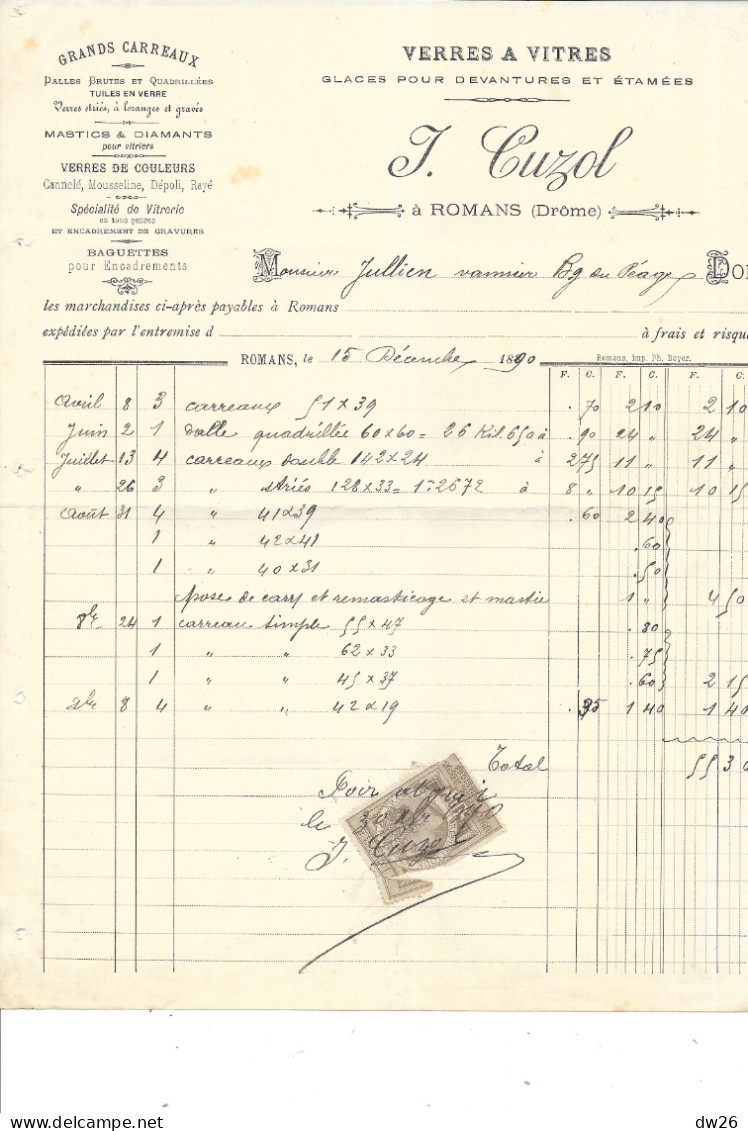 GRANDS CARREAUX
DALLES BRUTES ET QUADRILLÉES
TUILES EN VERRE
Verres striés, à losanges et gravés
MASTICS & DIAMANTS
pour vitriers
VERRES DE COULEURS
Cannelé, Mousseline, Dépoli, Rayé
Spécialité de Vitrerie
en tous genres
ET ENCADREMENT DE GRAVURES
BAGUETTES
pour Encadrements
VERRES A VITRES
GLACES POUR DEVANTURES ET ÉTAMÉES
J. Cuzol
à ROMANS (Drôme)
Monsieur Jullien vannier Bg du Péage Do
les marchandises ci-après payables à Romans
expédiées par l'entremise d à frais et risqu
ROMANS, le 15 Décembre 1890
Romans, imp. Ph. Boyer.
F. C. F. C. F. C.
Avril 8 3 carreaux 51 x 39 . 70 2 10 2 10
Juin 2 1 dalle quadrillée 60x60 = 26 Kil. 650 à . 90 24 " 24 "
Juillet 13 4 carreaux double 142 x 24 à 2 75 11 " 11 "
" 26 3 " striés 128 x 33 = 1m2672 à 8 " 10 15 10 15
Août 31 4 " 41 x 39 . 60 2 40
1 " 42 x 41 . 60
1 " 40 x 31 . 50
pose de carx et remasticage et mastic 1 " 4 50
8bre 24 1 carreau simple 55 x 47 . 80
1 " " 62 x 33 . 75
1 " " 45 x 37 . 60 2 15
xbre 8 4 " " 42 x 19 . 35 1 40 1 40
Total 55 30
Pour
le 30 xbre 1890
J. Cuzol
dw26